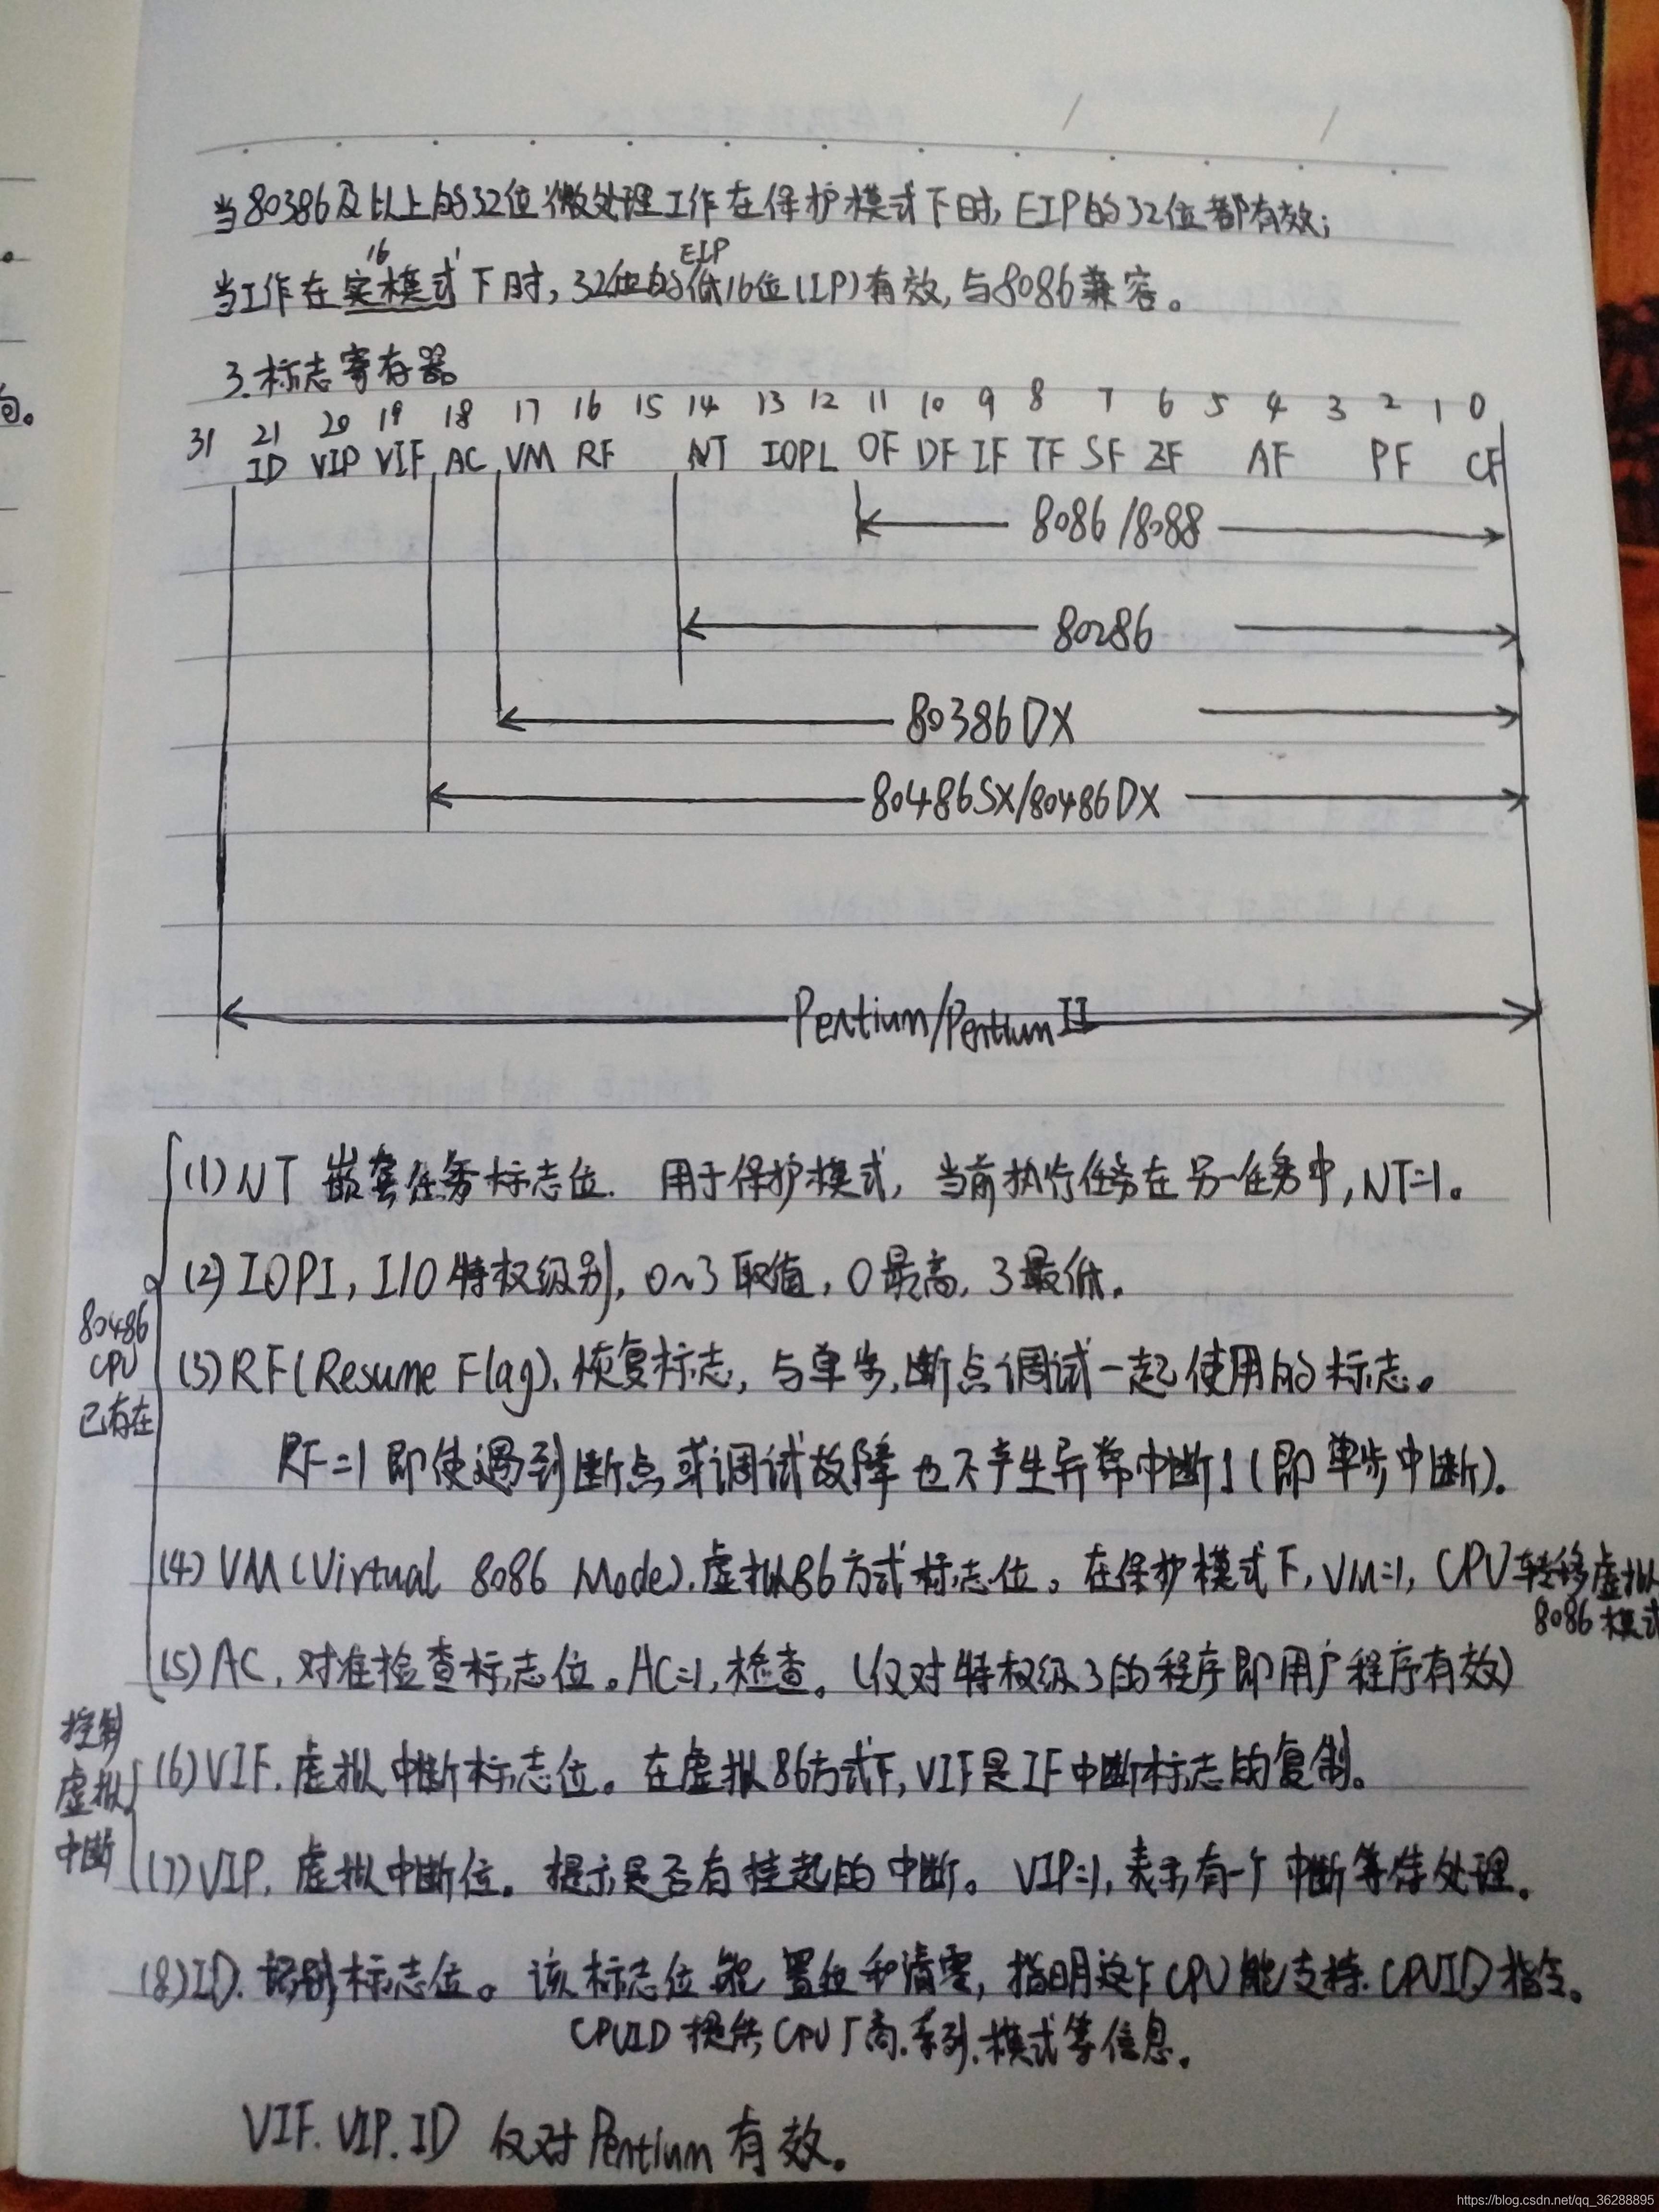 当80386及以上的32位微处理工作在保护模式下时,EIP的32位都有效;
16 EIP
当工作在实模式下时,32位的低16位(IP)有效,与8086兼容。
3.标志寄存器
31 21 20 19 18 17 16 15 14 13 12 11 10 9 8 7 6 5 4 3 2 1 0
ID VIP VIF AC VM RF NT IOPL OF DF IF TF SF ZF AF PF CF
8086/8088
80286
80386DX
80486SX/80486DX
Pentium/PentiumII
(1)NT 嵌套任务标志位. 用于保护模式, 当前执行任务在另一任务中,NT=1。
(2)IOPI, I/O特权级别, 0~3取值, 0最高, 3最低.
80486
CPU
已存在
(3)RF(Resume Flag).恢复标志, 与单步.断点调试一起使用的标志。
RF=1即使遇到断点或调试故障也不产生异常中断1(即单步中断).
(4)VM(Virtual 8086 Mode).虚拟86方式标志位。在保护模式下,VM=1, CPU转移虚拟
8086模式
(5)AC, 对准检查标志位。AC=1,检查。(仅对特权级3的程序即用户程序有效)
控制
虚拟
中断
(6)VIF.虚拟中断标志位。在虚拟86方式下,VIF是IF中断标志的复制。
(7)VIP, 虚拟中断位。提示是否有挂起的中断。VIP=1,表示有一个中断等待处理。
(8)ID.识别标志位。该标志位能置位和清零,指明这个CPU能支持CPUID指令。
CPUID提供CPU厂商.系列.模式等信息。
VIF.VIP.ID 仅对Pentium有效。
https://blog.csdn.net/qq_36288895